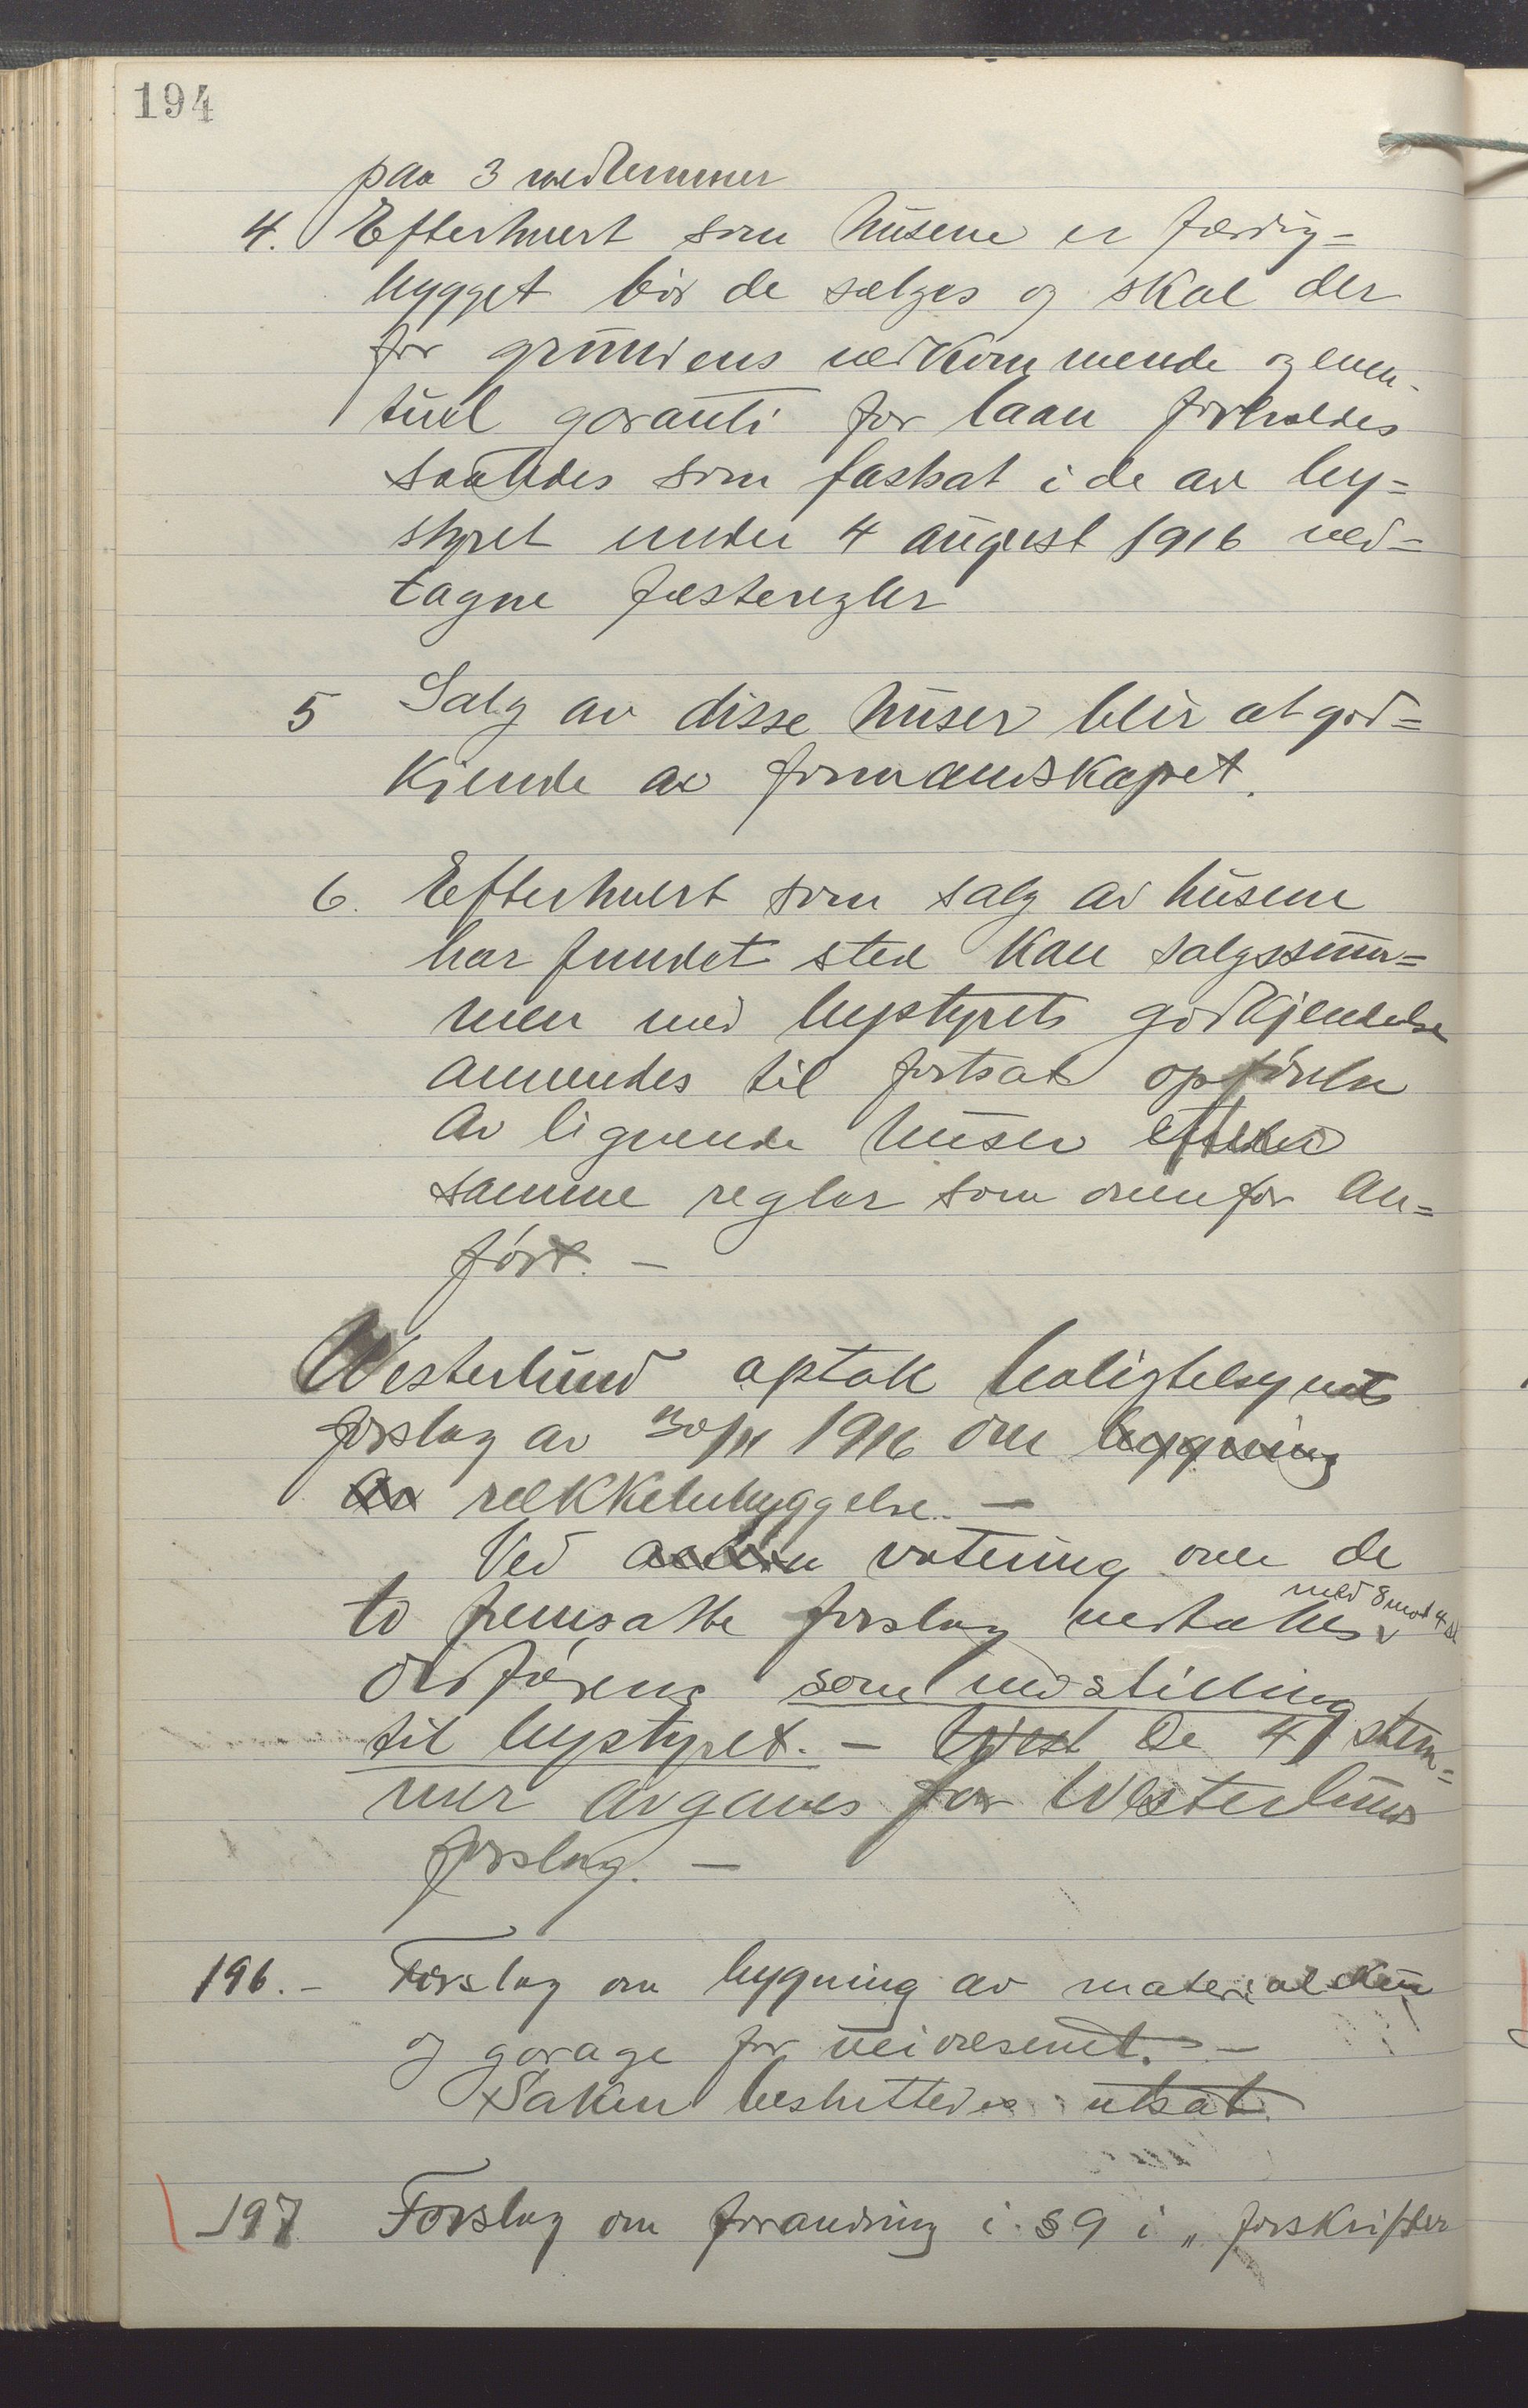 194
paa 3 medlemmer
4. Efterhvert som husene er færdig=
bygget bör de sælges og skal der
for grundens vedkommende og even-
tuel garanti for laan forholdes
saaledes som fastsat i de av by=
styret under 4 august 1916 ved=
tagne festeregler
5 Salg av disse huser blir at god=
kjende av formandskapet.
6. Efterhvert som salg av husene
har fundet sted kan salgssum=
men med bystyrets godkjendelse
anvendes til fortsat opförelse
av lignende huser efter
samme regler som ovenfor an=
fört. —
Westerlund optok boligtilsynets
forslag av 1916 om bygning
av rekkebebyggelse. —
Ved votering over de
to fremsatte forslag vedtokes med 8 mod 4 st
ordförens som indstilling
til bystyret. — West De 4 stem=
mer avgaves for Westerlunds
forslag. —
196. - Forslag om bygning av materialskur
og garage for veivæsenet. —
Saken besluttedes utsat.
197 Forslag om forandring i § 9 i „ forskrifter